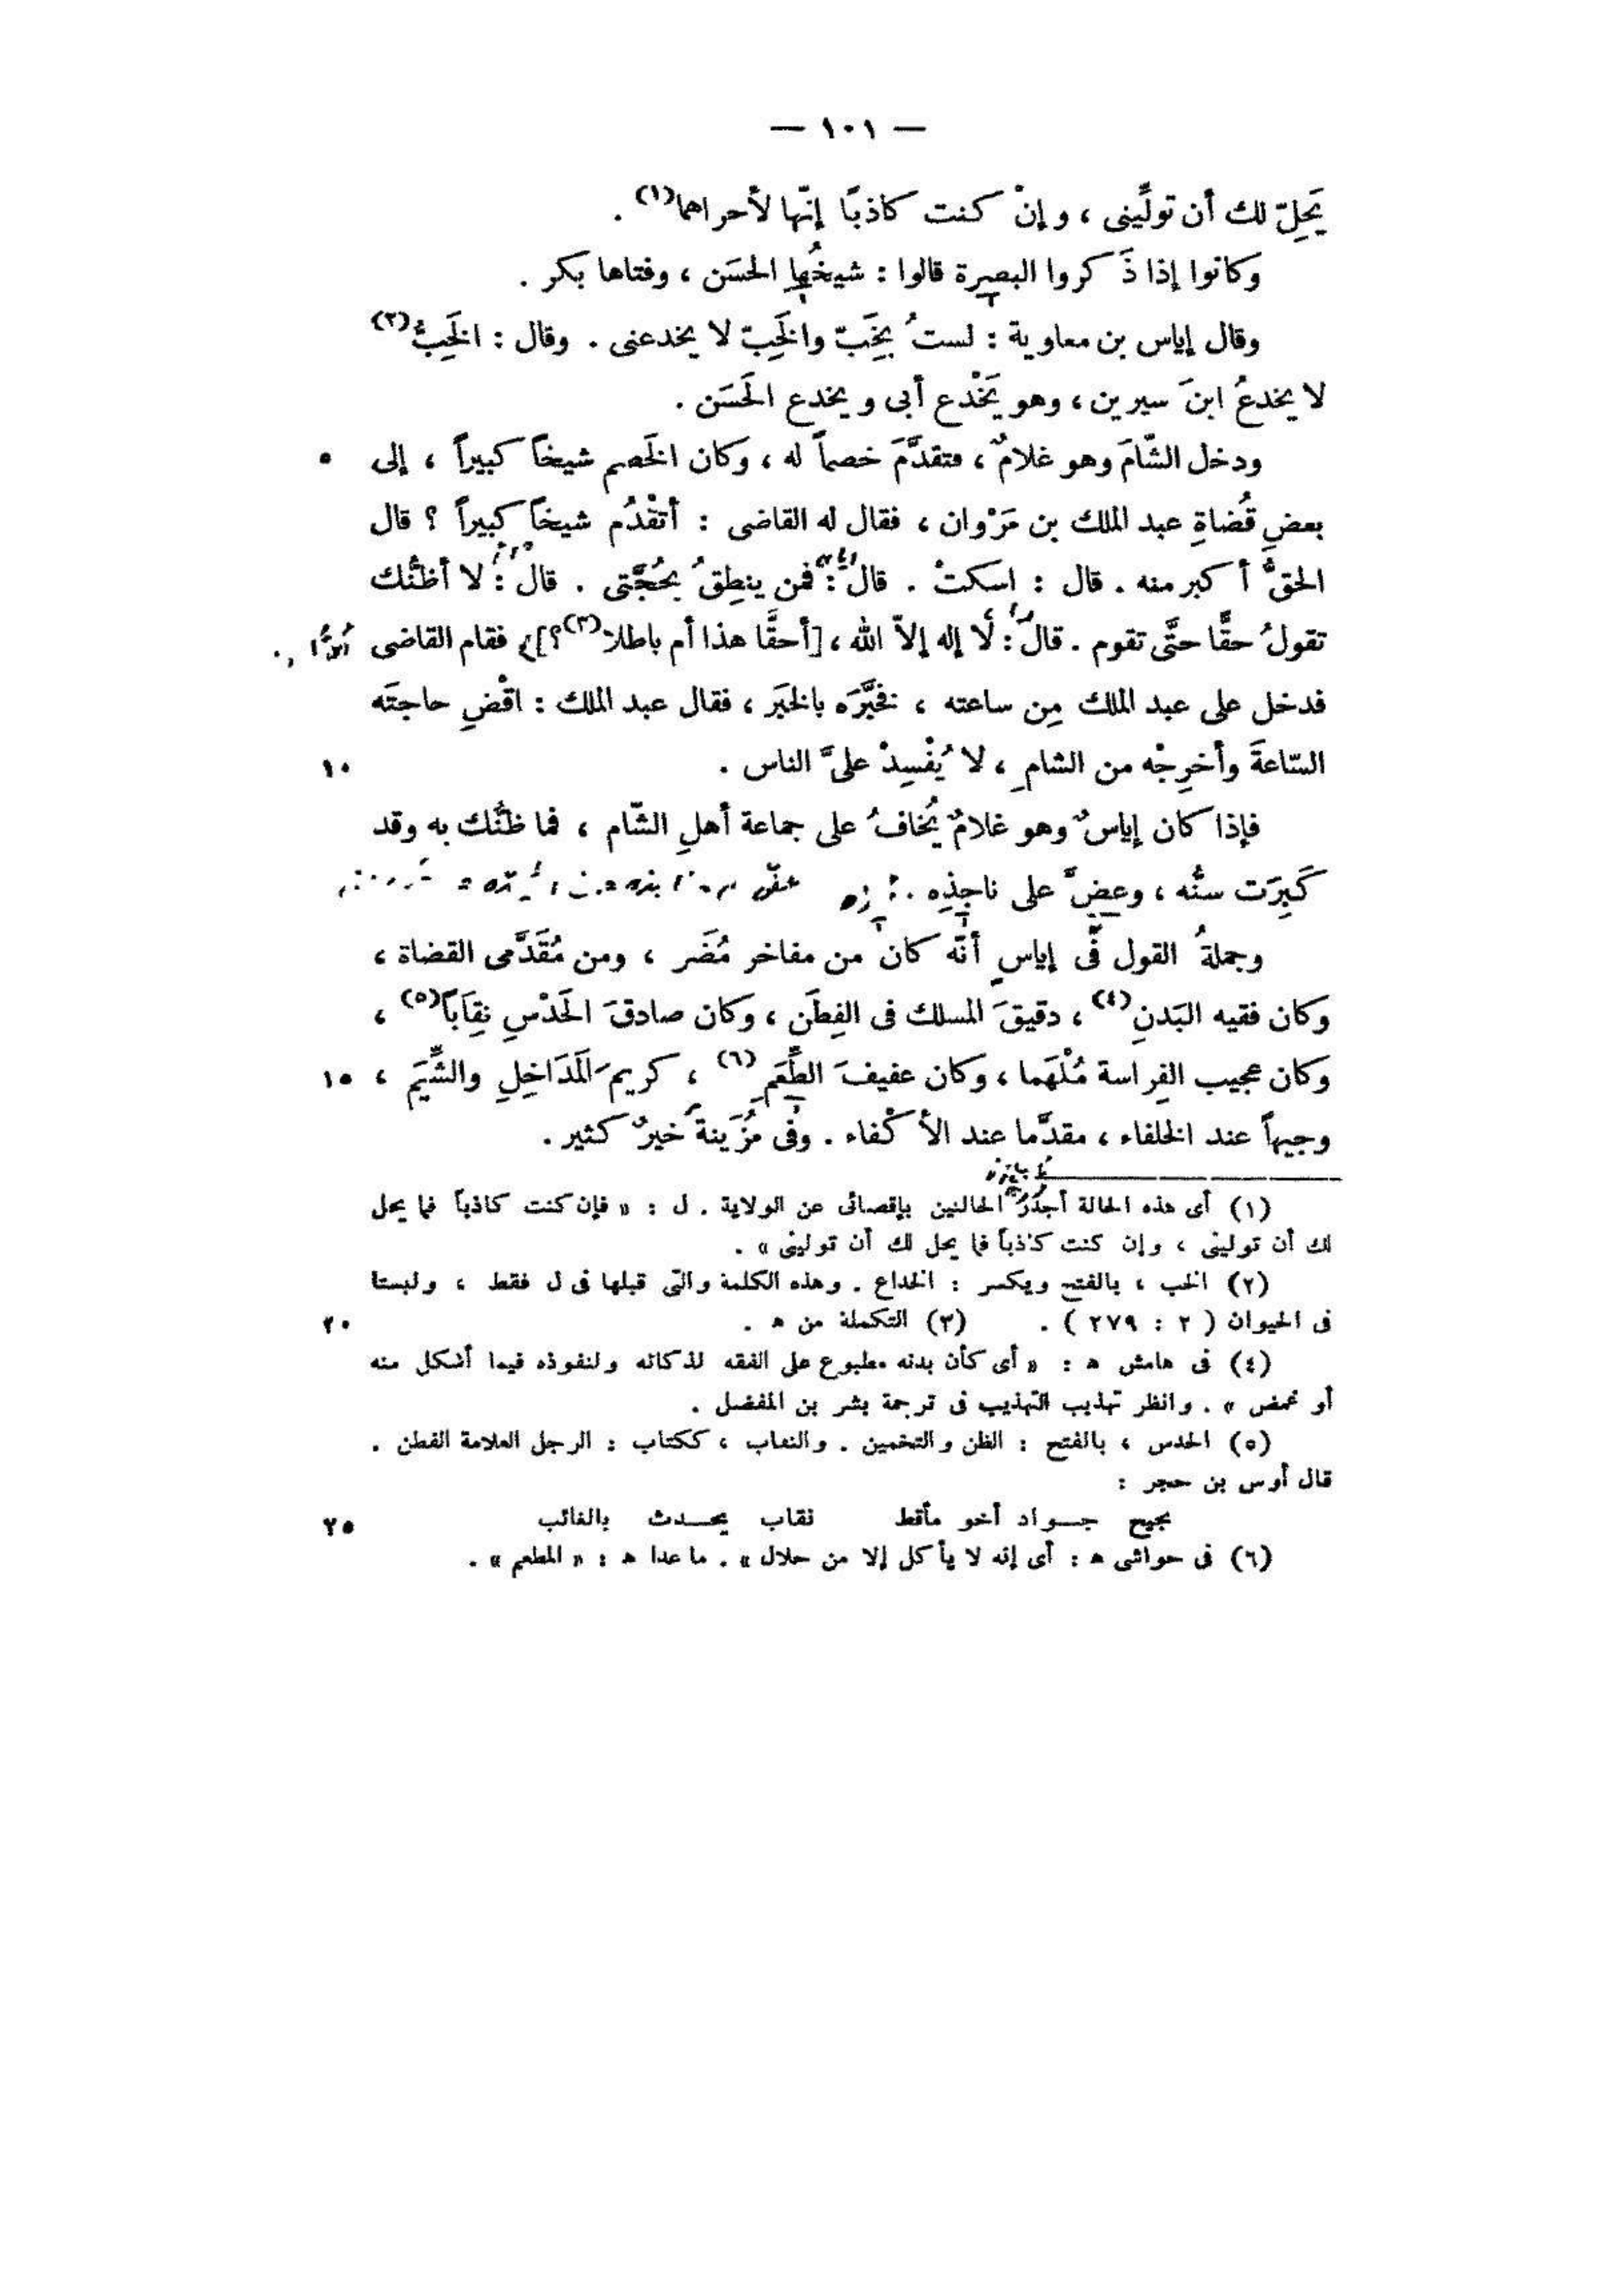 — ١٠١ —
يَحِلّ لك أن تولِّينى ، وإنْ كنت كاذبًا إنّها لأحراهما(١) .
وكانوا إذا ذَكروا البصرة قالوا : شيخُها الحسَن ، وفتاها بكر .
وقال إياس بن معاوية : لستُ بخَِبّ والخَِبّ لا يخدعنى . وقال : الخَِبُّ(٢)
لا يخدعُ ابنَ سيرين ، وهو يَخْدع أبى ويخدع الحَسَن .
ودخل الشّامَ وهو غلامٌ ، فتقدَّمَ خصماً له ، وكان الخَصم شيخاً كبيراً ، إلى ٥
بعضِ قُضاةِ عبد الملك بن مَرْوان ، فقال له القاضى : أتقْدُم شيخاً كبيراً ؟ قال
الحقُّ أكبر منه . قال : اسكتْ . قال : فمن ينطِقُ بحُجَّتى . قال : لا أظنُّك
تقولُ حقًّا حتَّى تقوم . قال : لا إله إلاّ الله ، [أحقًّا هذا أم باطلا(٣)؟] فقام القاضى
فدخل على عبد الملك مِن ساعته ، فخبَّرَه بالخبَر ، فقال عبد الملك : اقْضِ حاجتَه
السّاعةَ وأخرِجْه من الشامِ ، لا يُفْسِدْ علىَّ الناس . ١٠
فإذا كان إياسٌ وهو غلامٌ يُخافُ على جماعة أهلِ الشّام ، فما ظنُّك به وقد
كَبِرَت سنُّه ، وعضَّ على ناجِذِه .
وجملةُ القول فى إياسٍ أنّه كان من مفاخر مُضَر ، ومن مُقَدَّمى القضاة ،
وكان فقيه البَدنِ(٤) ، دقيقَ المسلك فى الفِطَن ، وكان صادقَ الحَدْسِ نِقَاباً(٥) ،
وكان عجيب الفِراسة مُلْهَما ، وكان عفيفَ الطِّعَمِ(٦) ، كريم المَدَاخِلِ والشِّيَم ، ١٥
وجيهاً عند الخلفاء ، مقدَّما عند الأكْفاء . وفى مُزَينةَ خيرٌ كثير .
(١) أى هذه الحالة أجدر الحالتين بإقصائى عن الولاية . ل : « فإن كنت كاذباً فما يحل
لك أن تولينى ، وإن كنت كاذباً فما يحل لك أن تولينى » .
(٢) الخب ، بالفتح ويكسر : الخداع . وهذه الكلمة والتى قبلها فى ل فقط ، وليستا
فى الحيوان ( ٢ : ٢٧٩ ) . (٣) التكملة من ﻫ . ٢٠
(٤) فى هامش ﻫ : « أى كأن بدنه مطبوع على الفقه لذكائه ولنفوذه فيما أشكل منه
أو غمض » . وانظر تهذيب التهذيب فى ترجمة بشر بن المفضل .
(٥) الحدس ، بالفتح : الظن والتخمين . والنقاب ، ككتاب : الرجل العلامة الفطن .
قال أوس بن حجر :
نجيح جــواد أخو مأقط نقاب يحــدث بالغائب ٢٥
(٦) فى حواشى ﻫ : أى إنه لا يأكل إلا من حلال » . ما عدا ﻫ : « المطعم » .